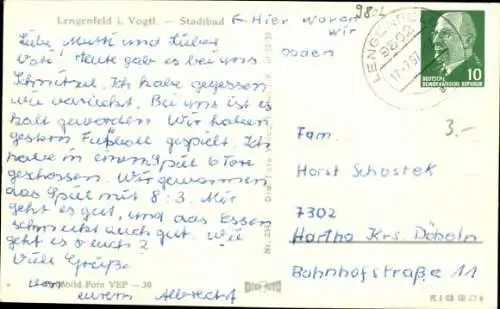 Lengenfeld i. Vogtl. — Stadtbad
Hier waren
wir
baden
Liebe Mutti und lieber
Vati. Heute gab es bei uns
Schnitzel. Ich habe gegessen
wie verrückt. Bei uns ist es
kalt geworden. Wir haben
gestern Fußball gespielt. Ich
habe in einem Spiel 6 Tore
geschossen. Wir gewannen
das Spiel mit 8:3. Mir
geht es gut, und das Essen
schmeckt auch gut. Wie
geht es euch?
Viele Grüße
von
eurem Albrecht
98-2
LENGENFELD
9802
DEUTSCHE
DEMOKRATISCHE REPUBLIK
10
3.-
Fam.
Horst Schostek
7302
Hartha Krs. Döbeln
Bahnhofstraße 11
Bild und Foto VEB